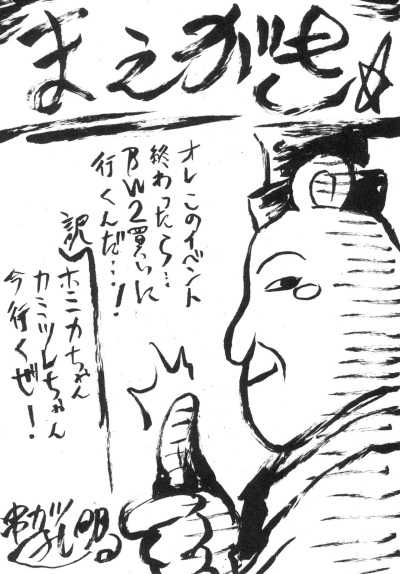 まえがき☆
オレこのイベント
終わったら…
BW2買いに
行くんだ…！
訳
ホミカちゃん
カミツレちゃん
今行くぜ！
串カツ